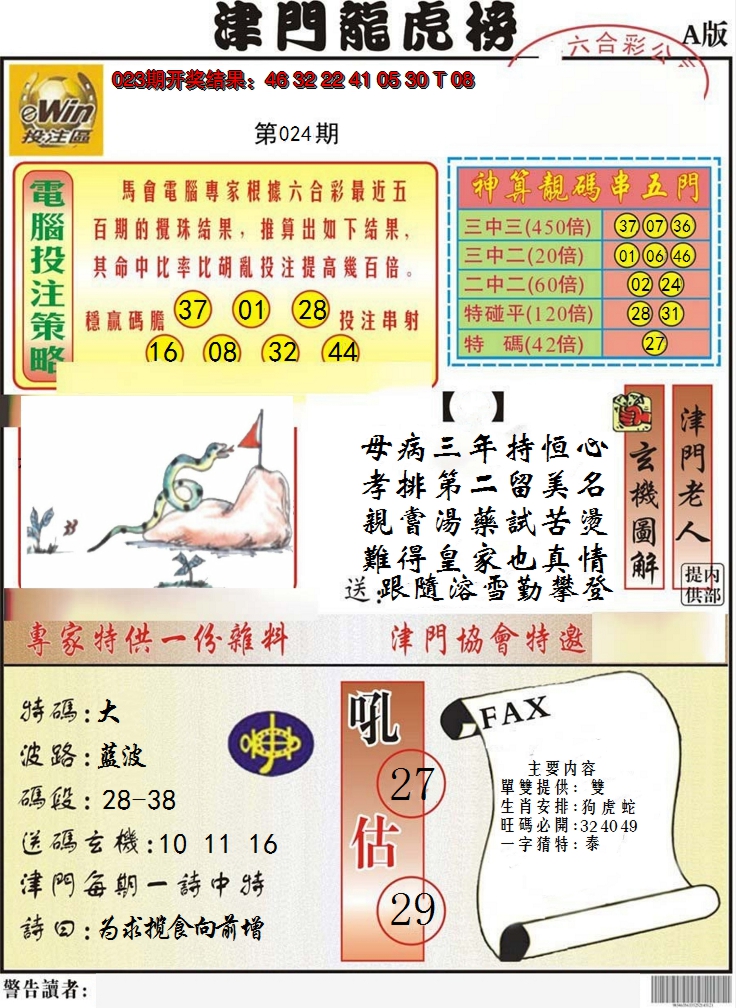 津門龍虎榜
A版
六合彩公
023期开奖结果：46 32 22 41 05 30 T 08
eWin
投注區
第024期
電腦投注策略
馬會電腦專家根據六合彩最近五
百期的攪珠结果，推算出如下结果，
其命中比率比胡亂投注提高幾百倍。
穩贏碼膽 37 01 28 投注串射
16 08 32 44
神算靚碼串五門
三中三(450倍) 37 07 36
三中二(20倍) 01 06 46
二中二(60倍) 02 24
特碰平(120倍) 28 31
特 碼(42倍) 27
【 】
母病三年持恒心
孝排第二留美名
親嘗湯藥試苦燙
難得皇家也真情
送：跟隨溶雪勤攀登
玄機圖解
津門老人
内部提供
專家特供一份雜料
津門協會特邀
特碼：大
波路：藍波
碼段：28-38
送碼玄機：10 11 16
津門每期一詩中特
詩曰：为求揽食向前增
吼
27
估
29
FAX
主要内容
單雙提供：雙
生肖安排：狗虎蛇
旺碼必開：32 40 49
一字猜特：泰
警告讀者：